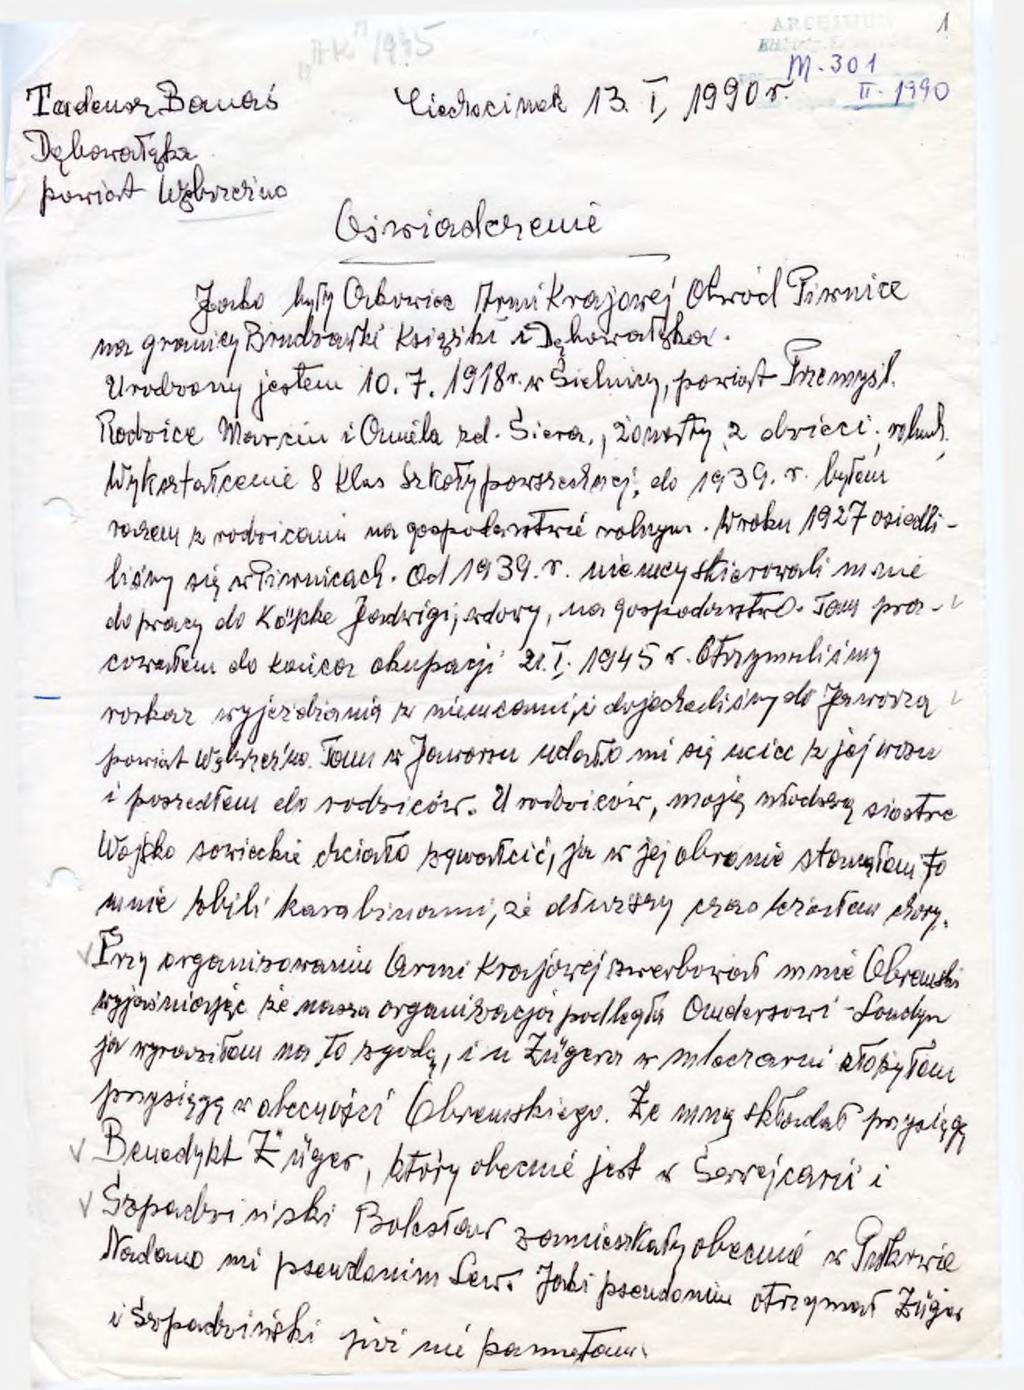 "AK" 1945
1
ARCHIWUM
M-301
II-1990
Tadeusz Banaś
Ciechocinek 13. I, 1990 r.
Dębowałąka
powiat Wąbrzeźno
Oświadczenie
Jako były Członek Armi Krajowej Obwód Piwnice
na granicy Brudzawki Książki i Dębowałąka.
Urodzony jestem 10.7.1918 r. w Sielnicy, powiat Przemyśl.
Rodzice Marcin i Aniela zd. Siera., żonaty, 2 dzieci, roln.
Wykształcenie 8 klas Szkoły powszechnej, do 1939. r. byłem
razem z rodzicami na gospodarstwie rolnym. W roku 1927 osiedli-
liśmy się w Piwnicach. Od 1939. r. niemcy skierowali mnie
do pracy do Köpke Jadwigi, wdowy, na gospodarstwo. Tam pra-
cowałem do końca okupacji 21. I. 1945 r. Otrzymaliśmy
rozkaz wyjeżdżania z niemcami, i dojechaliśmy do Jaworza
powiat Wąbrzeźno. Tam w Jaworzu udało mi się uciec z jej wozu
i poszedłem do rodziców. U rodziców, moją młodszą siostrę
Wojsko sowieckie chciało zgwałcić, ja w jej obronie stanąłem to
mnie zbili karabinami, że dłuższy czas leżałem chory.
Przy organizowaniu Armi Krajowej zwerbował mnie Obremski
wyjaśniając że nasza organizacja podlegla Andersowi - Londyn
ja wyraziłam na to zgodę, i u Zügera w mleczarni złożyłam
przysięgę w obecności Obremskiego. Ze mną składał przysięgę
Benedykt Züger, który obecnie jest w Szwejcarii i
Szpadziński Bolesław zamieszkały obecnie w
Nadano mi pseudonim Lew. Jaki pseudonim otrzymał Züger
i Szpadziński już nie pamiętam.